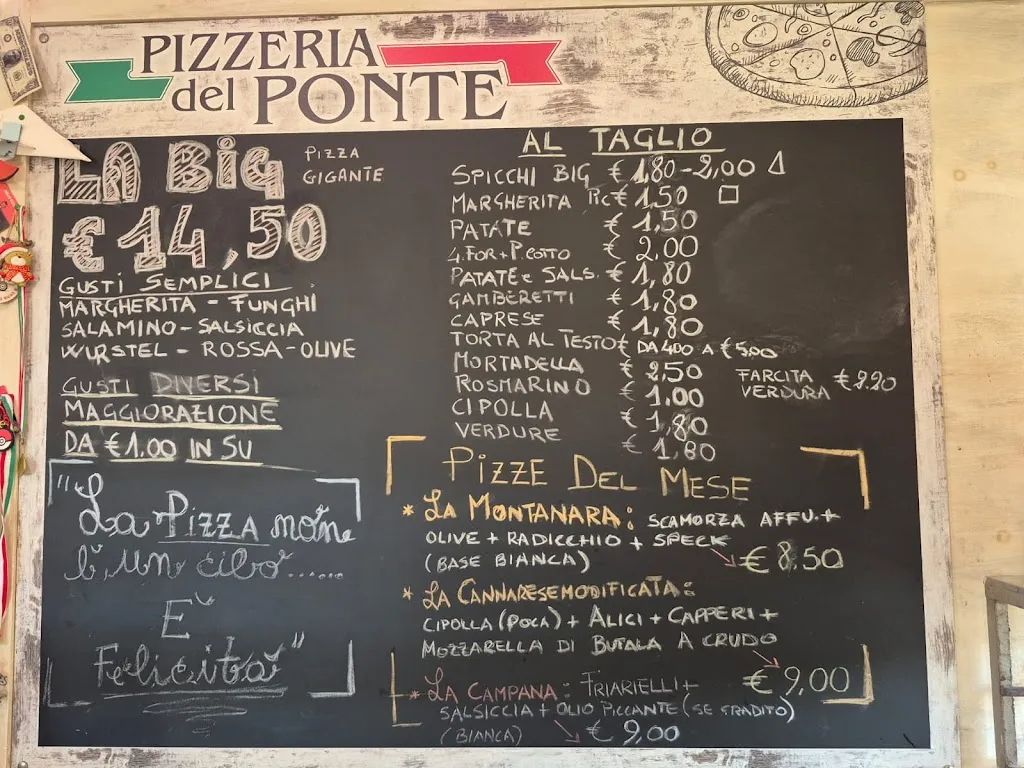 PIZZERIA
del PONTE
LA BIG PIZZA GIGANTE
€ 14,50
GUSTI SEMPLICI
MARGHERITA - FUNGHI
SALAMINO - SALSICCIA
WURSTEL - ROSSA - OLIVE
GUSTI DIVERSI
MAGGIORAZIONE
DA €1,00 IN SU
"La PIZZA non
è un cibo......
E'
Felicità"
AL TAGLIO
SPICCHI BIG € 1,80 - 2,00
MARGHERITA PIC € 1,50
PATATE € 1,50
4 FOR + P. COTTO € 2,00
PATATE e SALS. € 1,80
GAMBERETTI € 1,80
CAPRESE € 1,80
TORTA AL TESTO € DA 4,00 A € 5,00
MORTADELLA € 2,50
ROSMARINO € 1,00
CIPOLLA € 1,80
VERDURE € 1,80
FARCITA € 2.20
VERDURA
PIZZE DEL MESE
* LA MONTANARA: SCAMORZA AFFU. +
OLIVE + RADICCHIO + SPECK
(BASE BIANCA) € 8.50
* LA CANNARESEMODIFICATA:
CIPOLLA (POCA) + ALICI + CAPPERI +
MOZZARELLA DI BUFALA A CRUDO
€ 9,00
* LA CAMPANA: FRIARIELLI +
SALSICCIA + OLIO PICCANTE (SE GRADITO)
(BIANCA) € 9.00